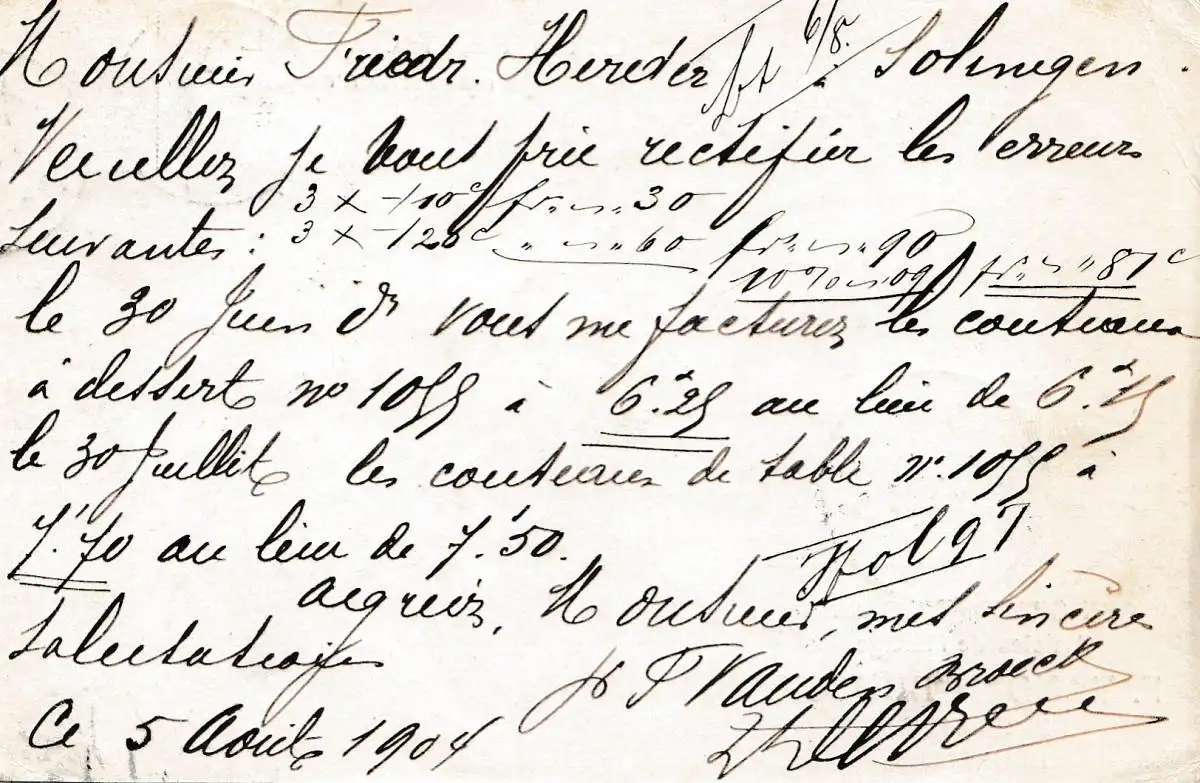 Monsieur Friedr. Herder à Solingen.
6/8.
Veuillez je vous prie rectifier les erreurs
3 × -/10c fr. „ 30
suivantes : 3 × -/20c „ „ 60 fr. „ 90
10% 09 fr. „ 81c
le 30 Juin dr vous me facturez les couteaux
à dessert no 1055 à 6.25 au lieu de 6.15
le 30 Juillet les couteaux de table no. 1055 à
7.70 au lieu de 7.50.
Fol 97
Agréez, Monsieur, mes sincères
salutations
pr P Vanden Broeck
Ce 5 Août 1904